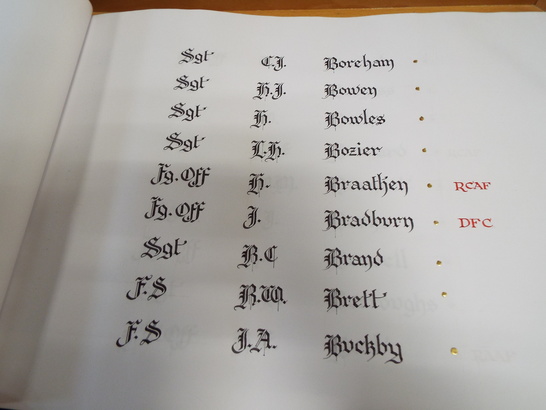 Sgt C.J. Boreham
Sgt H.J. Bowen
Sgt H. Bowles
Sgt L.H. Bozier
Fg. Off H. Braathen RCAF
Fg. Off J. Bradburn DFC
Sgt R.C Brand
F.S R.W. Brett
F.S J.A. Buckby